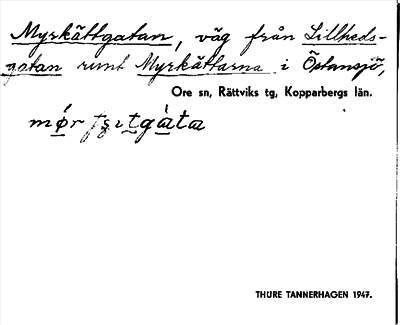 Myrkättgatan, väg från Lillheds-
gatan runt Myrkättarna i Östansjö,
Ore sn, Rättviks tg, Kopparbergs län.
THURE TANNERHAGEN 1947.